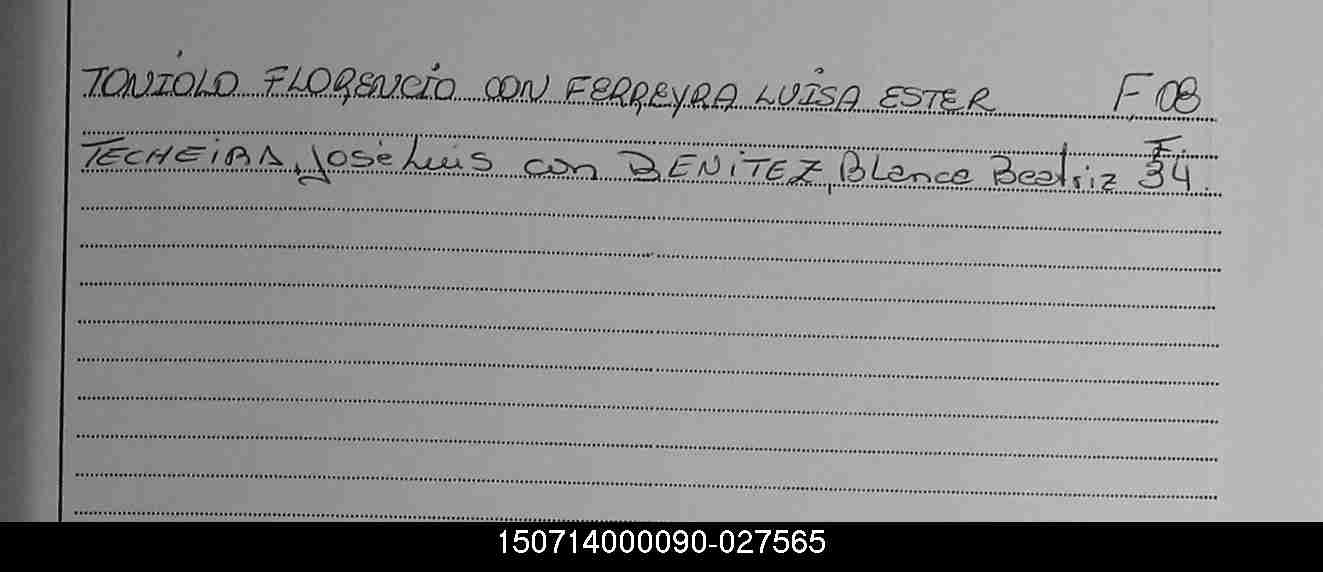 TONIOLO FLORENCIO CON FERREYRA LUISA ESTER F 08
TECHEIRA, José Luis con BENITEZ, Blanca Beatriz F. 34.
150714000090-027565